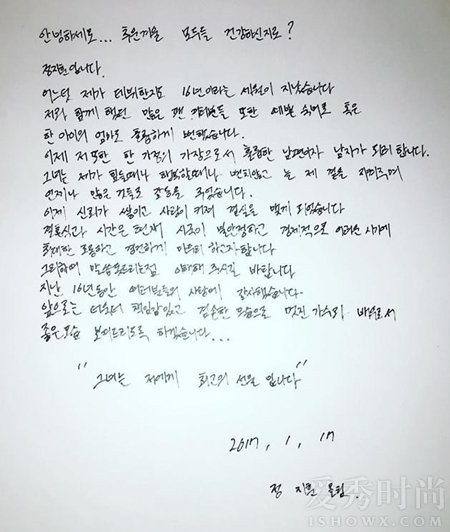 안녕하세요... 추운겨울 모두들 건강하신지요?
정지훈입니다.
어느덧 제가 데뷔한지도 16년이라는 세월이 지났습니다
저와 함께 했던 많은 팬 여러분들 또한 예쁜 숙녀로 혹은
한 아이의 엄마로 훌륭하게 변했습니다.
이제 저 또한 한 가정의 가장으로서 훌륭한 남편이자 남자가 되려 합니다.
그녀는 제가 힘들때나 행복할때나 변치않고 늘 제 곁을 지켜주며
언제나 많은 것들로 감동을 주었습니다.
이제 신뢰가 쌓이고 사랑이 커져 결실을 맺게 되었습니다
결혼식과 시간은 현재 시국이 불안정하고 경제적으로 어려운 시기에
최대한 조용하고 경건하게 마무리 하고자합니다.
그리하여 말씀못드리는점 이해해 주시길 바랍니다
지난 16년동안 여러분들의 사랑에 감사했습니다
앞으로는 더욱더 책임감있고 겸손한 모습으로 멋진 가수와 배우로서
좋은모습 보여드리도록 하겠습니다...
" 그녀는 저에게 최고의 선물 입니다 "
2017, 1, 17
정 지훈 올림.
爱秀时尚
ISHOWX.COM